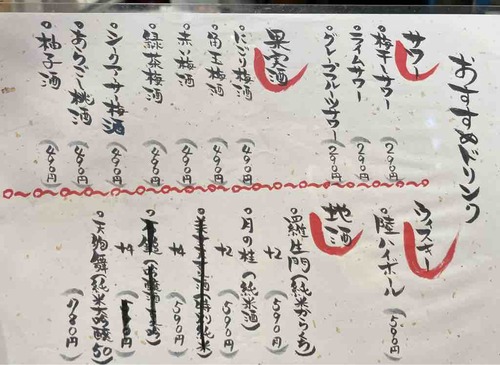 おすすめドリンク
サワー
○梅干サワー(290円)
○ライムサワー(290円)
○グレープフルーツサワー(290円)
果実酒
○にごり梅酒(490円)
○白玉梅酒(490円)
○赤い梅酒(490円)
○緑茶梅酒(490円)
○シークワーサー梅酒(490円)
○あらごし桃酒(490円)
○柚子酒(490円)
ウィスキー
○陸ハイボール(590円)
地酒
○羅生門(純米からくち)(590円)
+2
○月の桂(純米酒)(590円)
+2
(590円)
+4
+4
○天狗舞(純米大吟醸50)(780円)